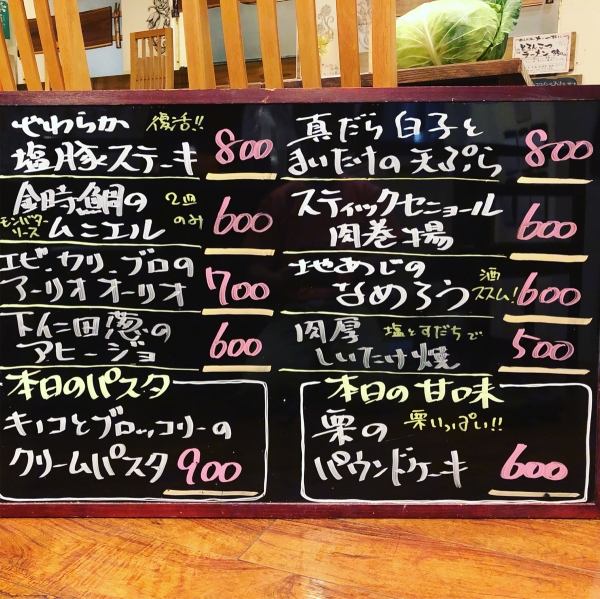 やわらか 復活!!
塩豚ステーキ 800
金時鯛の 2皿のみ
ムニエル 600
エビ、カリ、ブロの
アーリオオーリオ 700
下仁田葱の
アヒージョ 600
本日のパスタ
キノコとブロッコリーの
クリームパスタ 900
真だら白子と
まいたけの天ぷら 800
スティックセニョール
肉巻揚 600
地あじの 酒ススム!
なめろう 600
肉厚 塩とすだちで
しいたけ焼 500
本日の甘味
栗の 栗いっぱい!!
パウンドケーキ 600
とんこつ
ラーメン